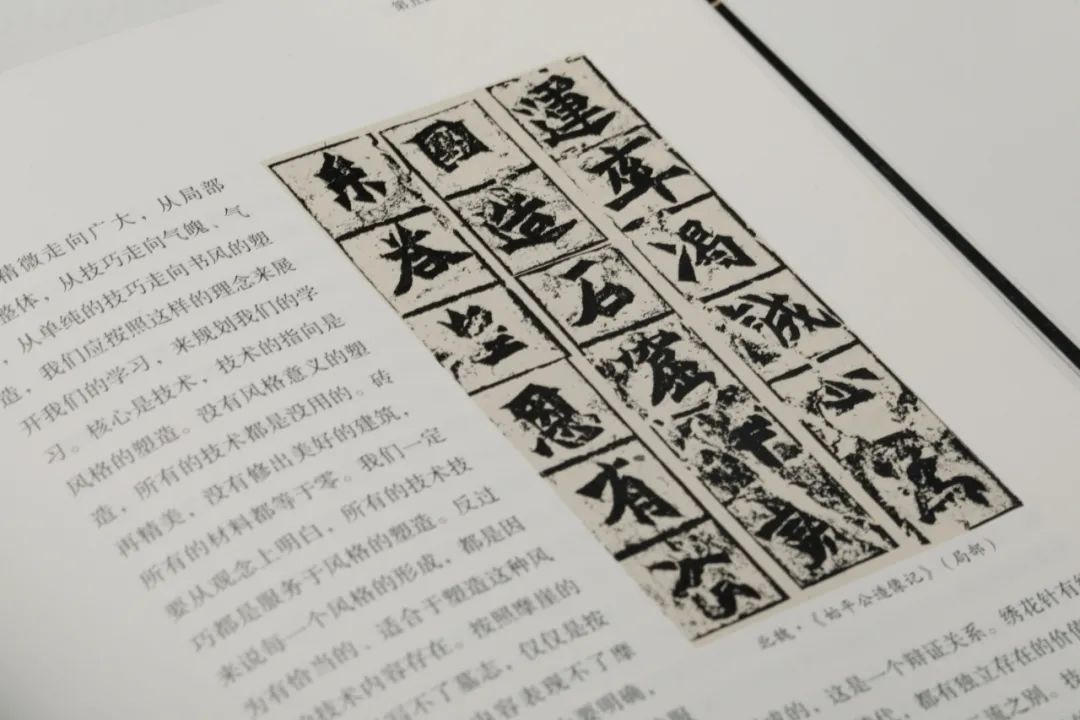 第五
運率渴誠心為
國造石窟
系答皇恩有資
北魏·《始平公造像记》（局部）
精微走向广大，从局部
整体，从技巧走向气魄、气
，从单纯的技巧走向书风的塑
造，我们应按照这样的理念来展
开我们的学习，来规划我们的学
习。核心是技术，技术的指向是
风格的塑造。没有风格意义的塑
造，所有的技术都是没用的。砖
再精美，没有修出美好的建筑，
所有的材料都等于零。我们一定
要从观念上明白，所有的技术技
巧都是服务于风格的塑造。反过
来说每一个风格的形成，都是因
为有恰当的、适合于塑造这种风
的技术内容存在。按照摩崖的
写不了墓志，仅仅是按
内容表现不了摩
要明确，
服
的，这是一个辩证关系。绣花针有
，都有独立存在的价值
流之别。技